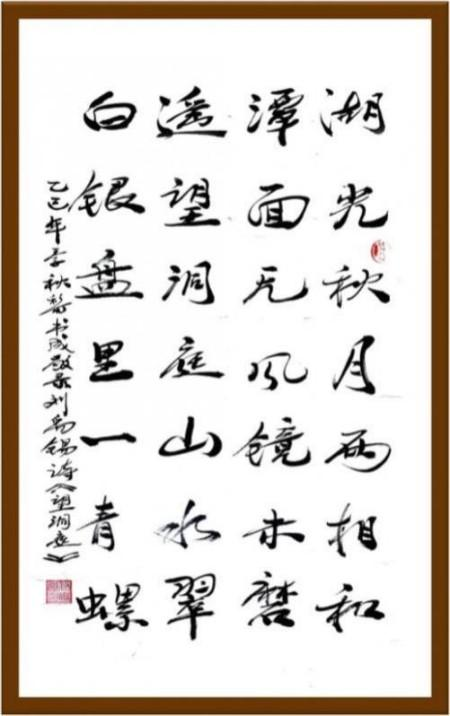 湖光秋月两相和
潭面无风镜未磨
遥望洞庭山水翠
白银盘里一青螺
乙巳年 秋 书 刘禹锡诗《望洞庭》